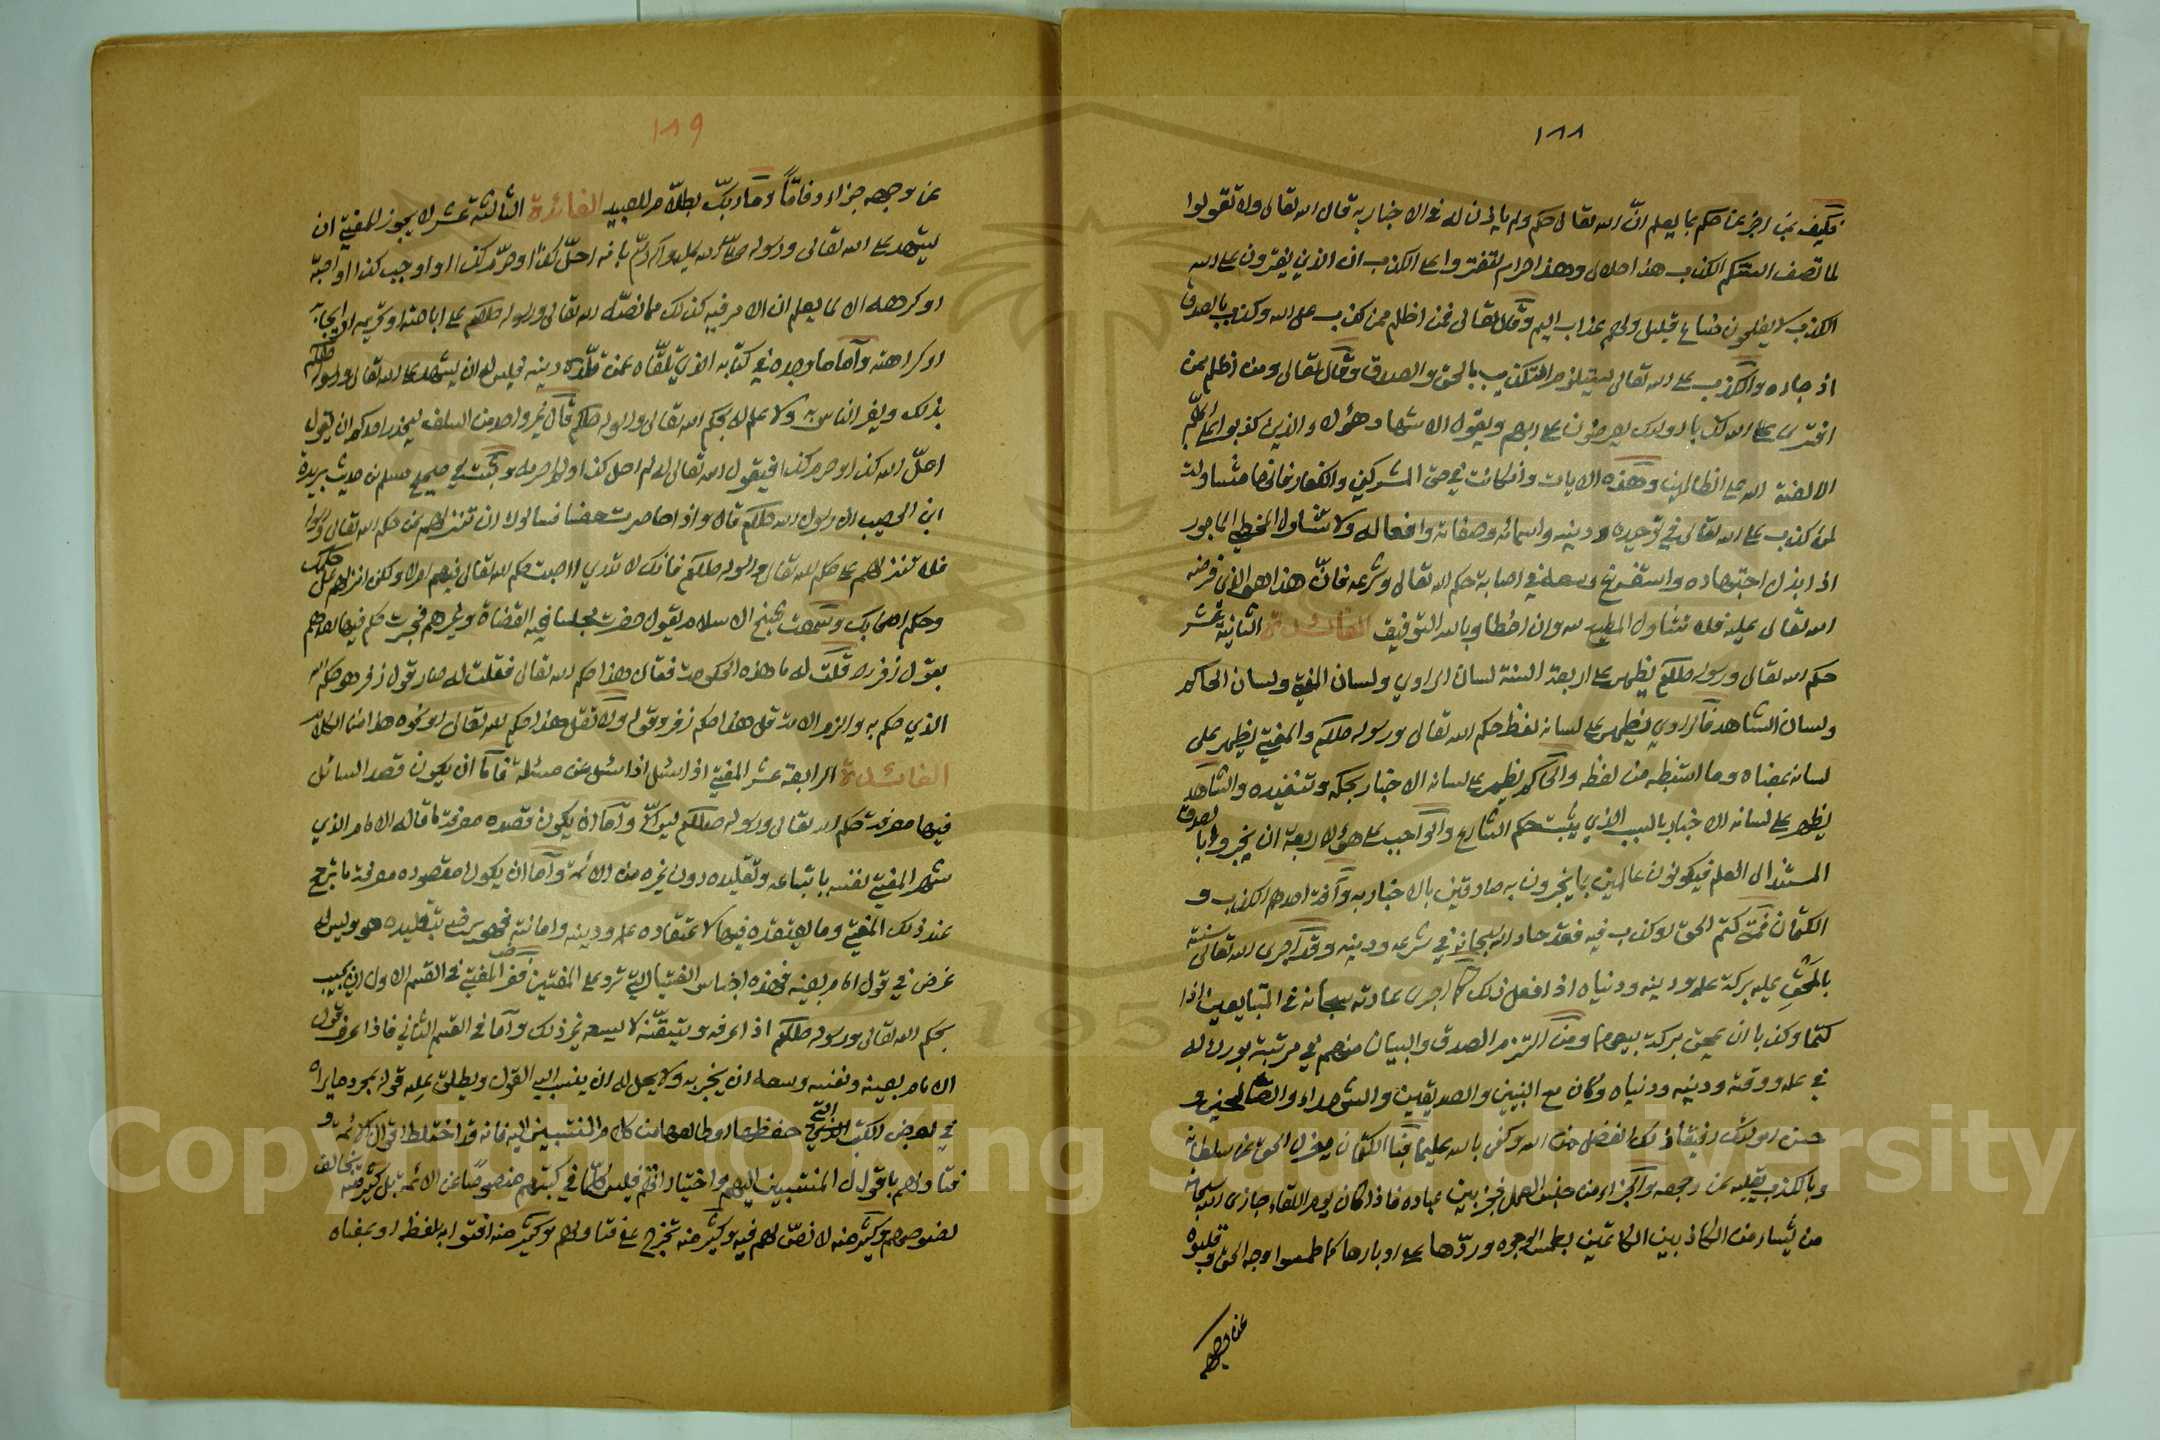 ١٨٨
فكيف بمن اخبر عن حكم بما يعلم انّ الله تعالى حكم ولم ياذن له في الاخبار به قال الله تعالى ولا تقولوا
لما تصف السنتكم الكذب هذا حلال وهذا حرام لتفتروا على الكذب ان الذين يفترون على الله
الكذب لا يفلحون متاع قليل ولهم عذاب اليم وقال تعالى فمن اظلم ممن كذب على الله وكذب بالصدق
اذ جاءه والكذب على الله تعالى يستلزم التكذيب بالحق والصدق وقال تعالى ومن اظلم ممن
افترى على الله كذبا اولئك يعرضون على ربهم ويقول الاشهاد هؤلاء الذين كذبوا على ربهم
الا لعنة الله على الظالمين وهذه الايات وان كانت في حق المشركين والكفار فانها متناولة
لمن كذب على الله تعالى في توحيده ودينه واسمائه وصفاته وافعاله ولا تتناول المخطي الماجور
اذا بذل اجتهاده واستفرغ وسعه في اصابة حكم الله تعالى وشرعه فانّ هذا هو الذي فرضه
الله تعالى عليه فلا تتناول المطيع لله وان اخطا وبالله التوفيق الفائدة الثانية عشر
حكم الله تعالى ورسوله صللم يظهر على اربعة السنة لسان الراوي ولسان المفتي ولسان الحاكم
ولسان الشاهد فالراوي يظهر على لسانه لفظ حكم الله تعالى ورسوله صللم والمفتي يظهر على
لسانه معناه وما استنبطه من لفظه والحاكم يظهر على لسانه الاخبار بحكمه وتنفيذه والشاهد
يظهر على لسانه الاخبار بالسبب الذي يثبت حكم الشارع والواجب على هؤلاء الاربعة ان يخبروا بالصدق
المستند الى العلم فيكونون عالمين بما يخبرون به صادقين بالاخبار به وآفة احدهم الكذب و
الكتمان فمتى كتم الحق او كذب فيه فقد حاد الله سبحانه في شرعه ودينه وقد اجرى الله تعالى سنته
بالمحق عليه بركة علمه ودينه ودنياه اذا فعل ذلك كما اجرى عادته سبحانه في المتبايعين اذا
كتما وكذبا ان يمحق بركة بيعهما ومن التزم الصدق والبيان منهم في مرتبته بورك له
في علمه ووقته ودينه ودنياه وكان مع النبيين والصديقين والشهداء والصالحين و
حسن اولئك رفيقا ذلك الفضل من الله وكفى بالله عليما فبالكتمان يعزل الحق عن سلطانه
وبالكذب يقلبه عن وجهه والجزاء من جنس العمل فجزا بين عباده فاذا كان يوم اللقاء جازى الله سبحانه
من يشاء من الكاذبين الكاتمين بطمس الوجوه وردّها على ادبارها كما طمسوا وجه الحق وقلبوه
عن وجهه
١٨٩
عن وجهه جزاء وفاقاً وما ربكّ بظلاّم للعبيد الفائدة الثالثة عشر لا يجوز للمفتي ان
يشهد على الله تعالى ورسوله صلى الله عليه وآله وسلم بانه احلّ كذا او حرّم كذا او اوجب كذا او احبه
او كرهه الا لما يعلم ان الامر فيه كذلك مما نصّ الله تعالى ورسوله صللم على اباحته او تحريمه او ايجابه
او كراهته واما ما وجده في كتابه الذي تلقّاه عمن قلّده دينه فليس له ان يشهد على الله تعالى ورسوله صللم
بذلك ويغر الناس به ولا علم له بحكم الله تعالى ورسوله صللم قال غير واحد من السلف ليحذر احدكم ان يقول
احلّ الله كذا او حرم كذا فيقول الله تعالى له لم احل كذا ولم احرمه وثبت في صحيح مسلم من حديث بريدة
ابن الحصيب ان رسول الله صللم قال واذا حاصرت حصنا فسألوك ان تنزلهم على حكم الله تعالى ورسوله
فلا تنزلهم على حكم الله تعالى ورسوله صللم فانك لا تدري ااصبت حكم الله تعالى فيهم ام لا ولكن انزلهم على حكمك
وحكم اصحابك وسمعت شيخ الاسلام يقول حضرت مجلسا فيه القضاة وغيرهم فجرت حكم فيها احدهم
بقول زفر قلت له ما هذه الحكومة فقال هذا حكم الله تعالى فقلت له صار قول زفر هو حكم الله
الذي حكم به والزم الامة قل هذا حكم زفر وقوله ولا تقل هذا حكم الله تعالى او نحوه هذا من الكلام
الفائدة الرابعة عشر المفتي اذا سئل اذا سئل عن مسئلة فاما ان يكون قصد السائل
فيها معرفة حكم الله تعالى ورسوله صللم ليس الا واما ان يكون قصده معرفة ما قاله الامام الذي
شهر المفتي نفسه باتباعه وتقليده دون غيره من الائمة واما ان يكون مقصوده معرفة ما ترجح
عند ذلك المفتي وما يعتقده فيها لاعتقاده علمه ودينه وامانته فهو يرضى بتقليده هو وليس له
غرض في قول امام بعينه فهذه اجناس الفتيا التي ترد على المفتين ففرض المفتي في القسم الاول ان يجيب
بحكم الله تعالى ورسوله صللم اذا عرفه وتيقنه لا يسعه غير ذلك واما في القسم الثاني فاذا عرف قول
الامام بعينه ونفسه وسعه ان يخبر به ولا يحل له ان ينسب اليه القول ويطلق عليه قوله بمجرد ما يراه
في بعض الكتب التي حفظها او طالعها من كلام المنتسبين اليه فانه قد اختلط اقوال الائمة و
فتاولهم باقوال المنتسبين اليهم واختياراتهم فليس كلما في كتبهم منصوصا عن الائمة بل كثير منه يخالف
نصوصهم وكثير منه لا نصّ لهم فيه وكثير منه تخرج على فتاولهم وكثير منه افتوا به بلفظه او بمعناه
Copyright © King Saud University